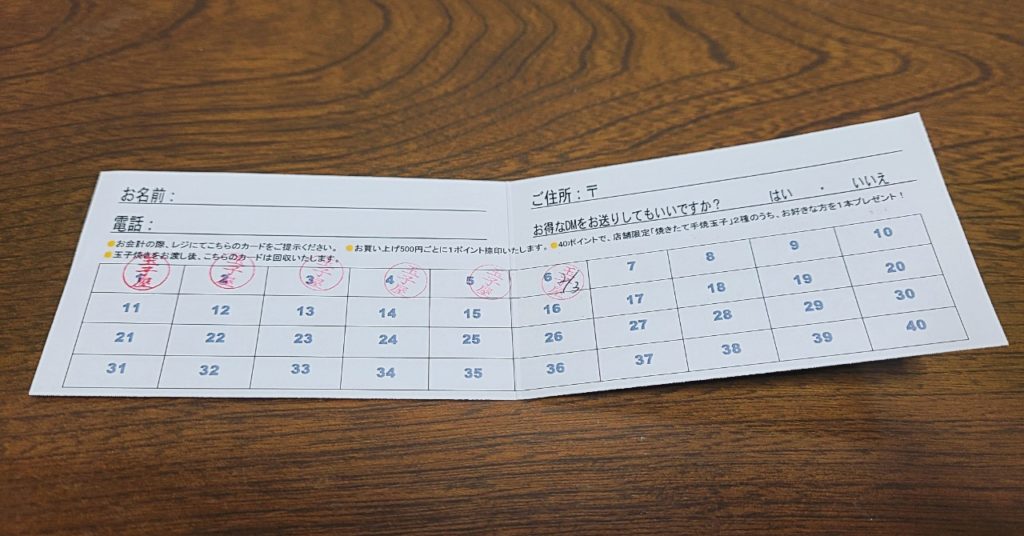 お名前：
電話：
●お会計の際、レジにてこちらのカードをご提示ください。 ●お買い上げ500円ごとに1ポイント捺印いたします。 ●40ポイントで、店舗限定「焼きたて手焼玉子」2種のうち、お好きな方を1本プレゼント！
●玉子焼きをお渡し後、こちらのカードは回収いたします。
ご住所：〒
お得なDMをお送りしてもいいですか？ はい ・ いいえ
1 2 3 4 5 6 7 8 9 10
11 12 13 14 15 16 17 18 19 20
21 22 23 24 25 26 27 28 29 30
31 32 33 34 35 36 37 38 39 40